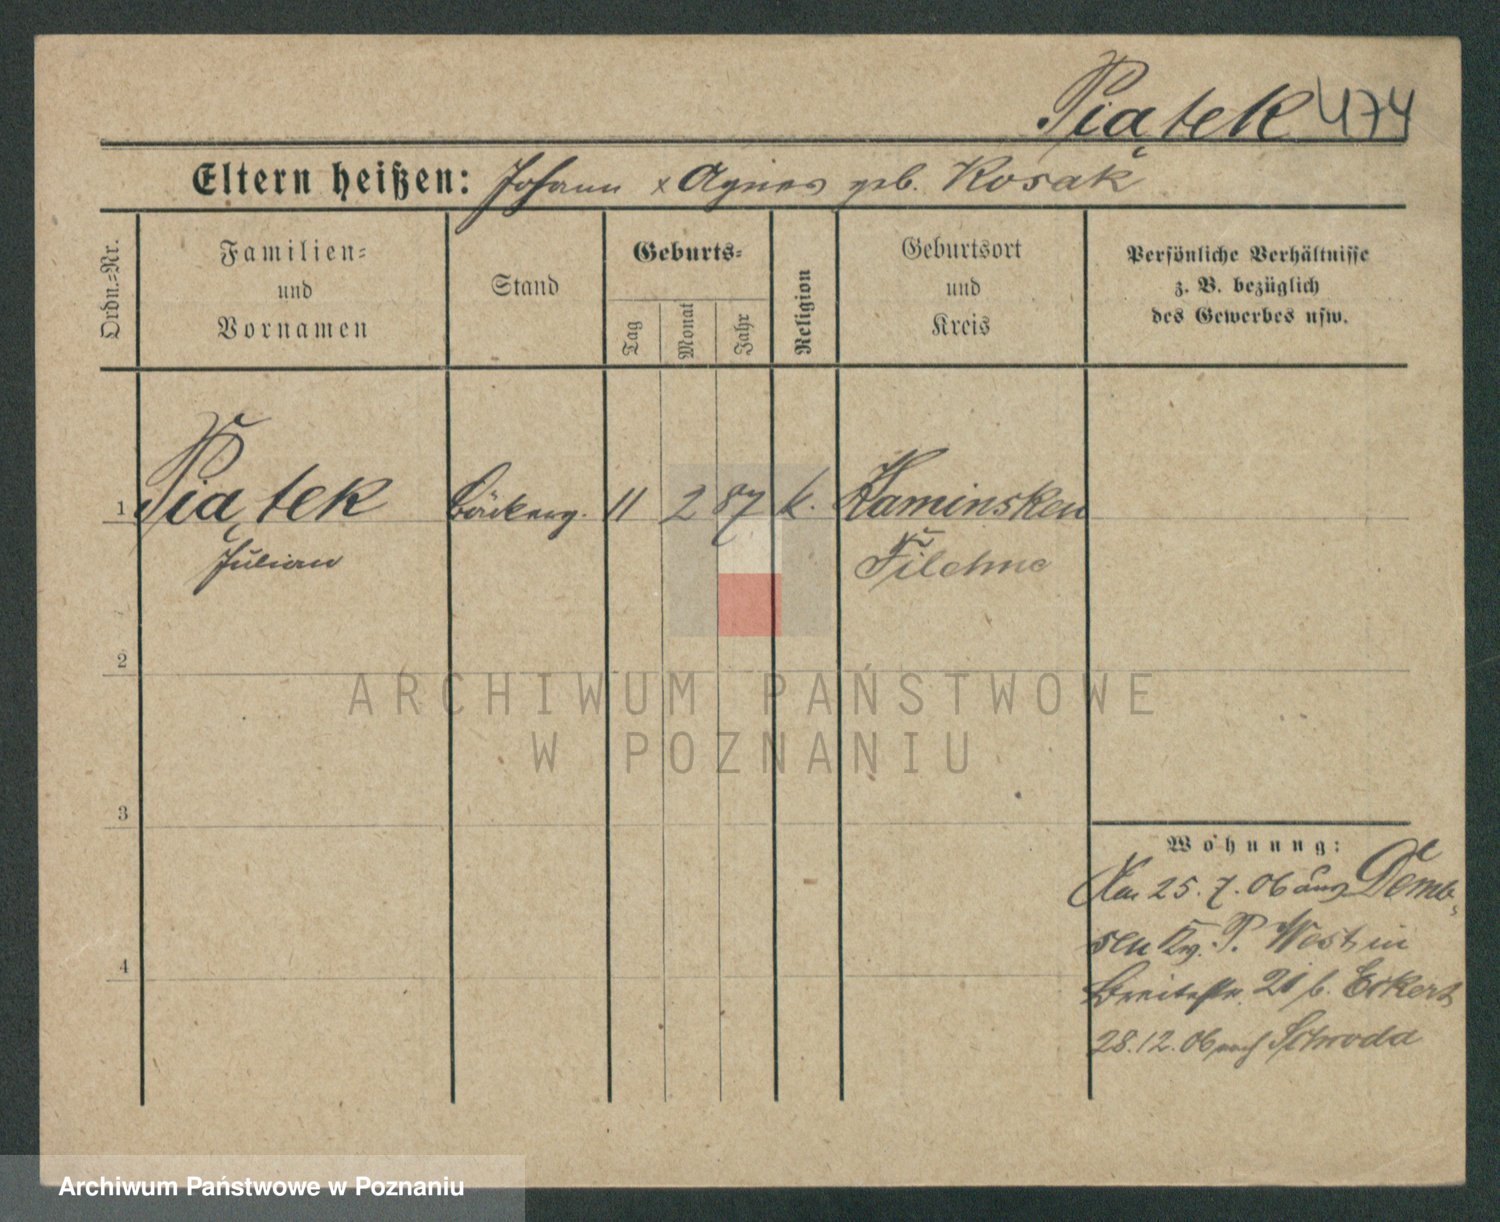 Piątek 474
Eltern heißen: Johann x Agnes geb. Kosak
Ordn.=Nr.
Familien=
und
Vornamen
Stand
Geburts=
Tag
Monat
Jahr
Religion
Geburtsort
und
Kreis
Persönliche Verhältnisse
z. B. bezüglich
des Gewerbes usw.
1 Piątek Bäckerg. 11 2 87 k. Kaminsken
Julian Filehne
2
3
4
Wohnung:
25. 7. 06 aus Demb-
sen Kr. P. West in
Breitestr. 21 b. Eckert
28.12.06 nach Schroda
ARCHIWUM PAŃSTWOWE
W POZNANIU
Archiwum Państwowe w Poznaniu